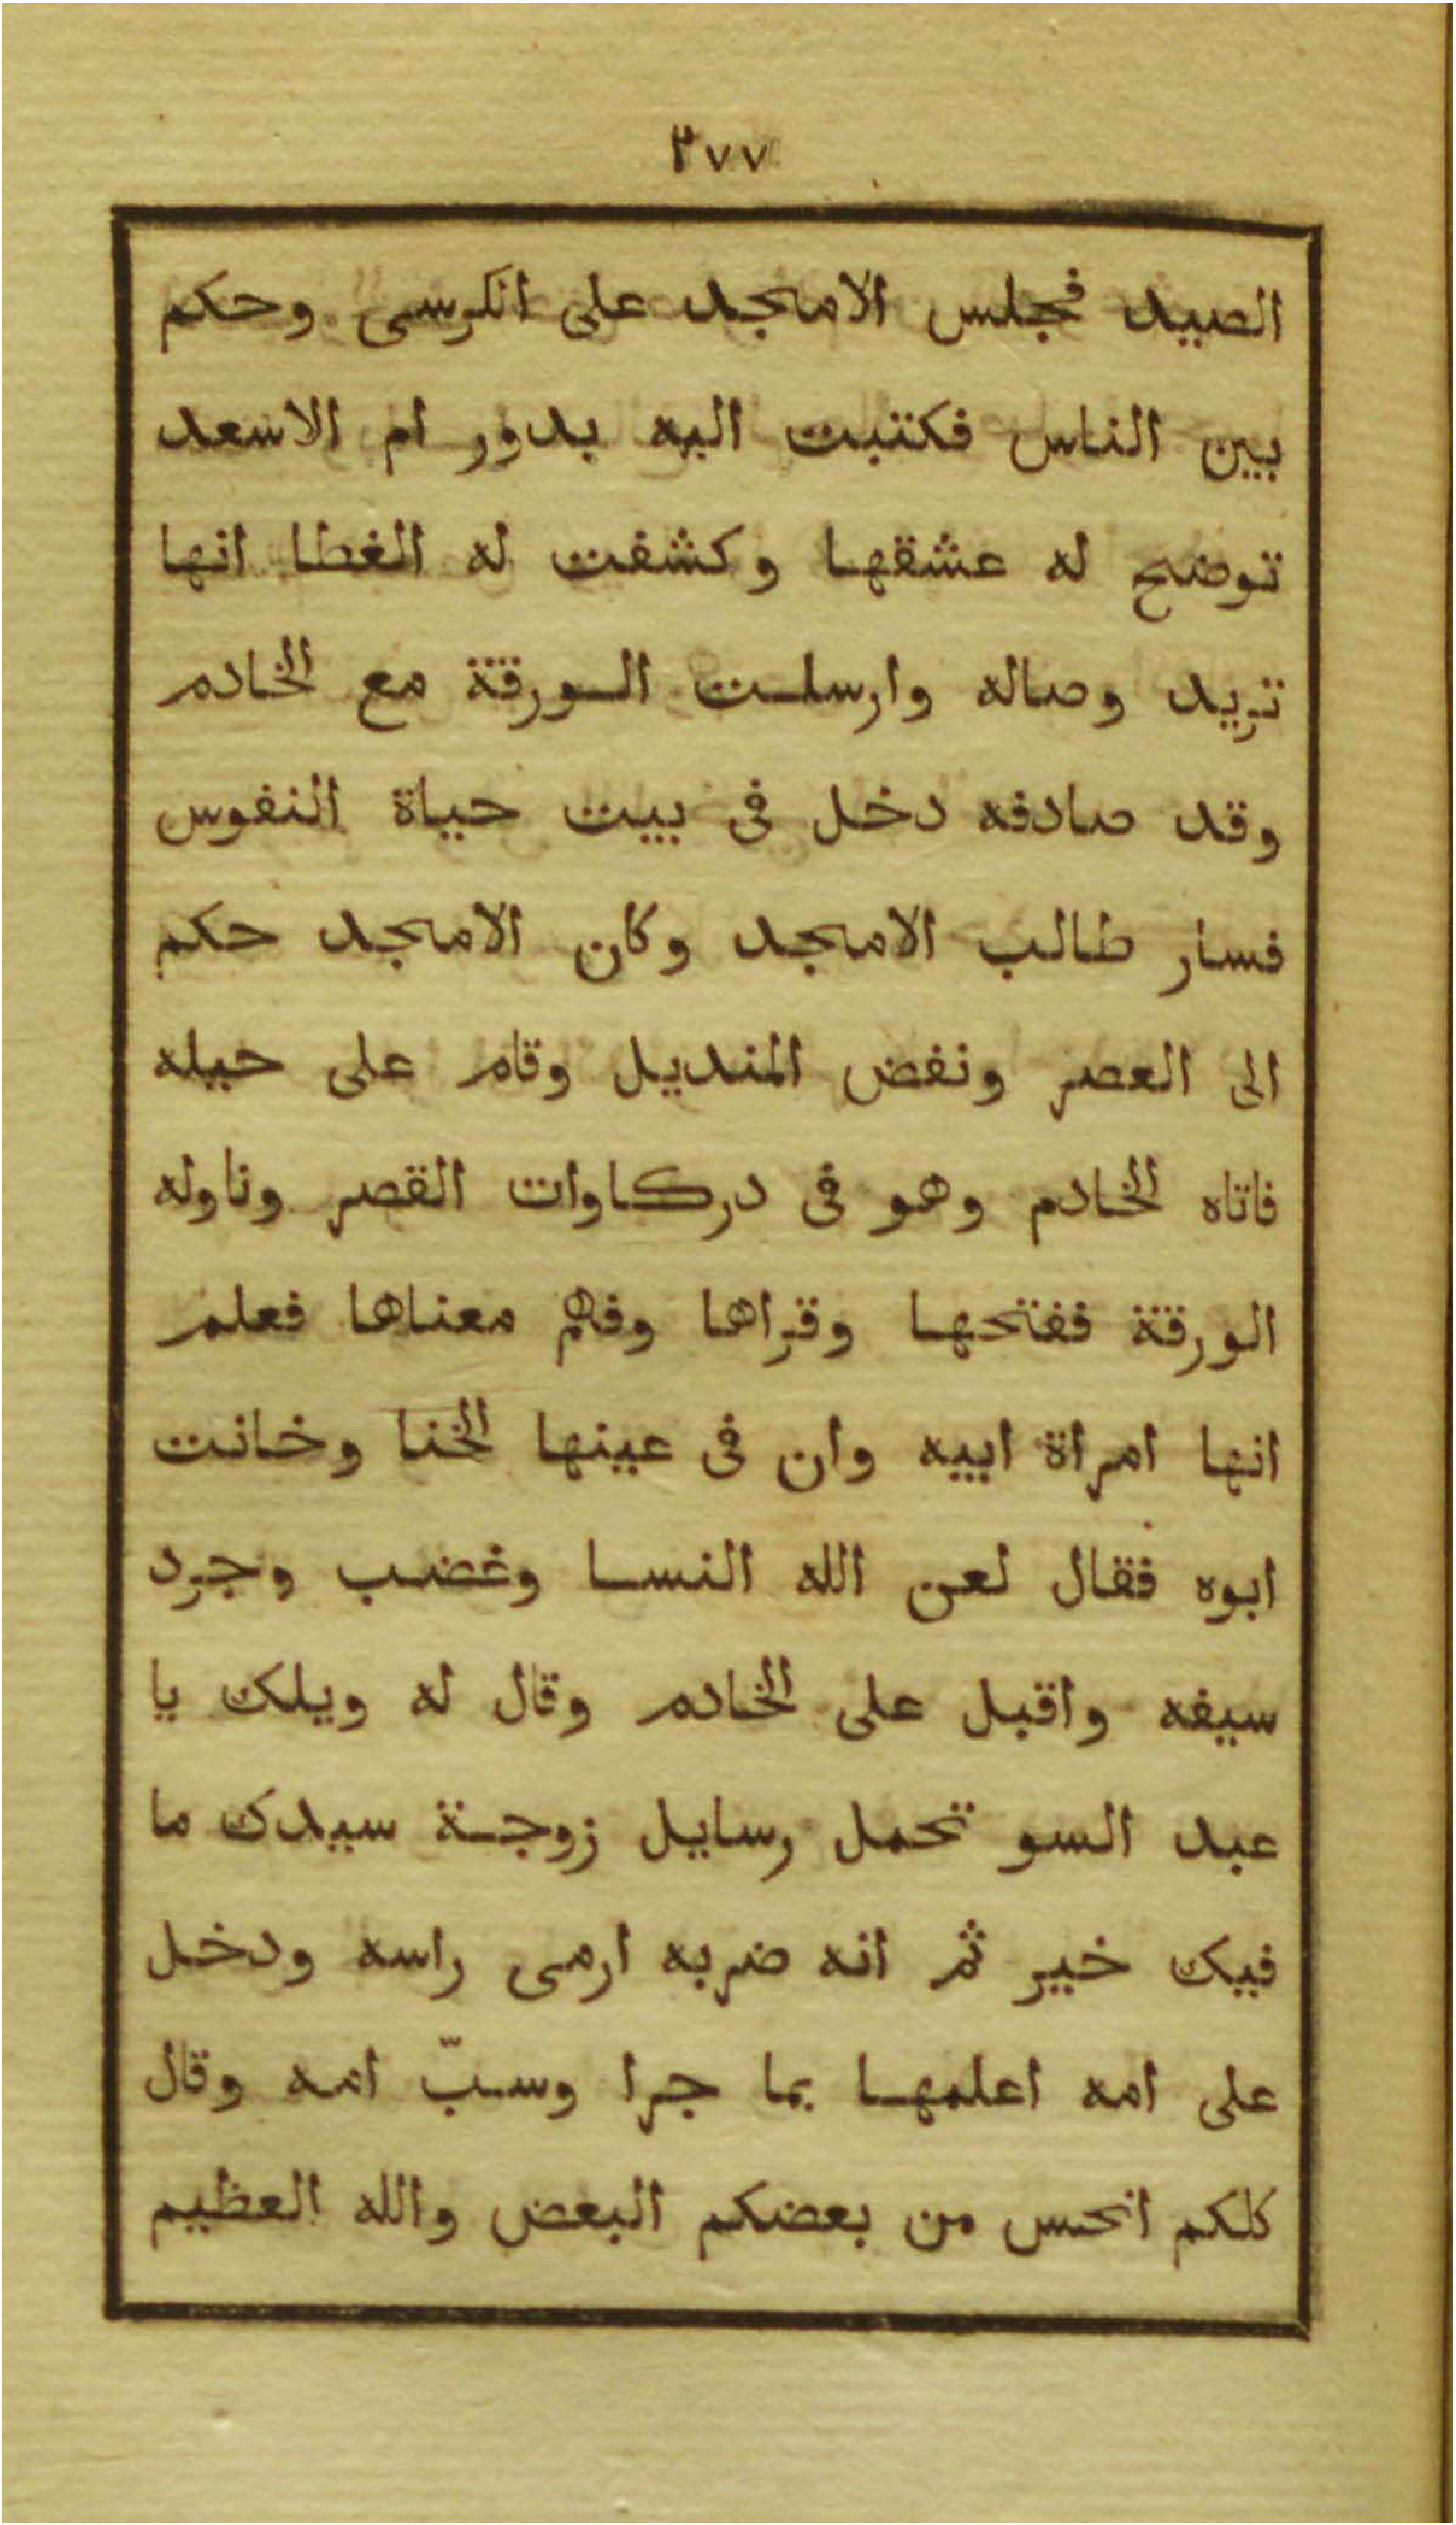 ٢٧٧
الصيد فجلس الامجد على الكرسى وحكم
بين الناس فكتبت اليه بدور ام الاسعد
توضح له عشقها وكشفت له الغطا انها
تريد وصاله وارسلت الورقة مع الخادم
وقد صادفه دخل فى بيت حياة النفوس
فسار طالب الامجد وكان الامجد حكم
الى العصر ونفض المنديل وقام على حيله
فاتاه الخادم وهو فى دركاوات القصر وناوله
الورقة ففتحها وقراها وفهم معناها فعلم
انها امراة ابيه وان فى عينها الخنا وخانت
ابوه فقال لعن الله النسا وغضب وجرد
سيفه واقبل على الخادم وقال له ويلك يا
عبد السو تحمل رسايل زوجة سيدك ما
فيك خير ثم انه ضربه ارمى راسه ودخل
على امه اعلمها بما جرا وسبّ امه وقال
كلكم انحس من بعضكم البعض والله العظيم